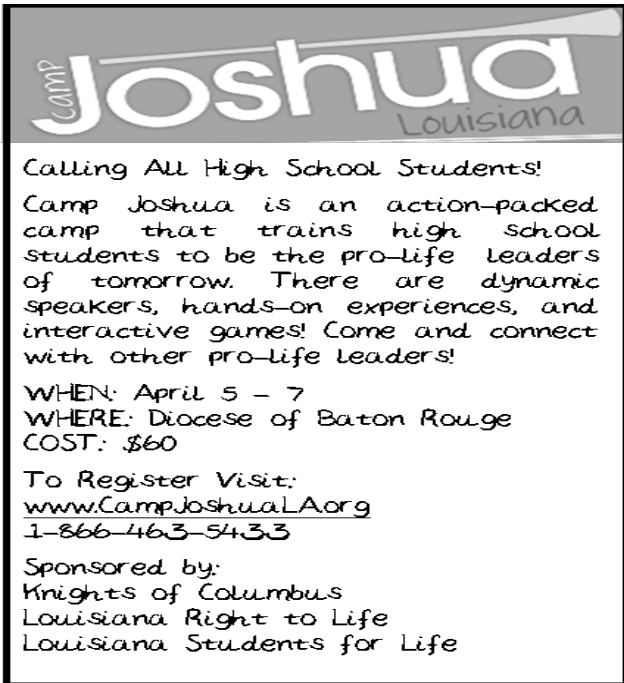 camp
Joshua
Louisiana
Calling All High School Students!
Camp Joshua is an action-packed
camp that trains high school
students to be the pro-life leaders
of tomorrow. There are dynamic
speakers, hands-on experiences, and
interactive games! Come and connect
with other pro-life leaders!
WHEN: April 5 - 7
WHERE: Diocese of Baton Rouge
COST: $60
To Register Visit:
www.CampJoshuaLA.org
1-866-463-5433
Sponsored by:
Knights of Columbus
Louisiana Right to Life
Louisiana Students for Life